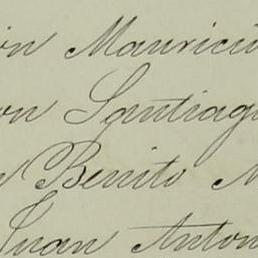 on Mauricio
on Santiago
Benito M
Juan Anton